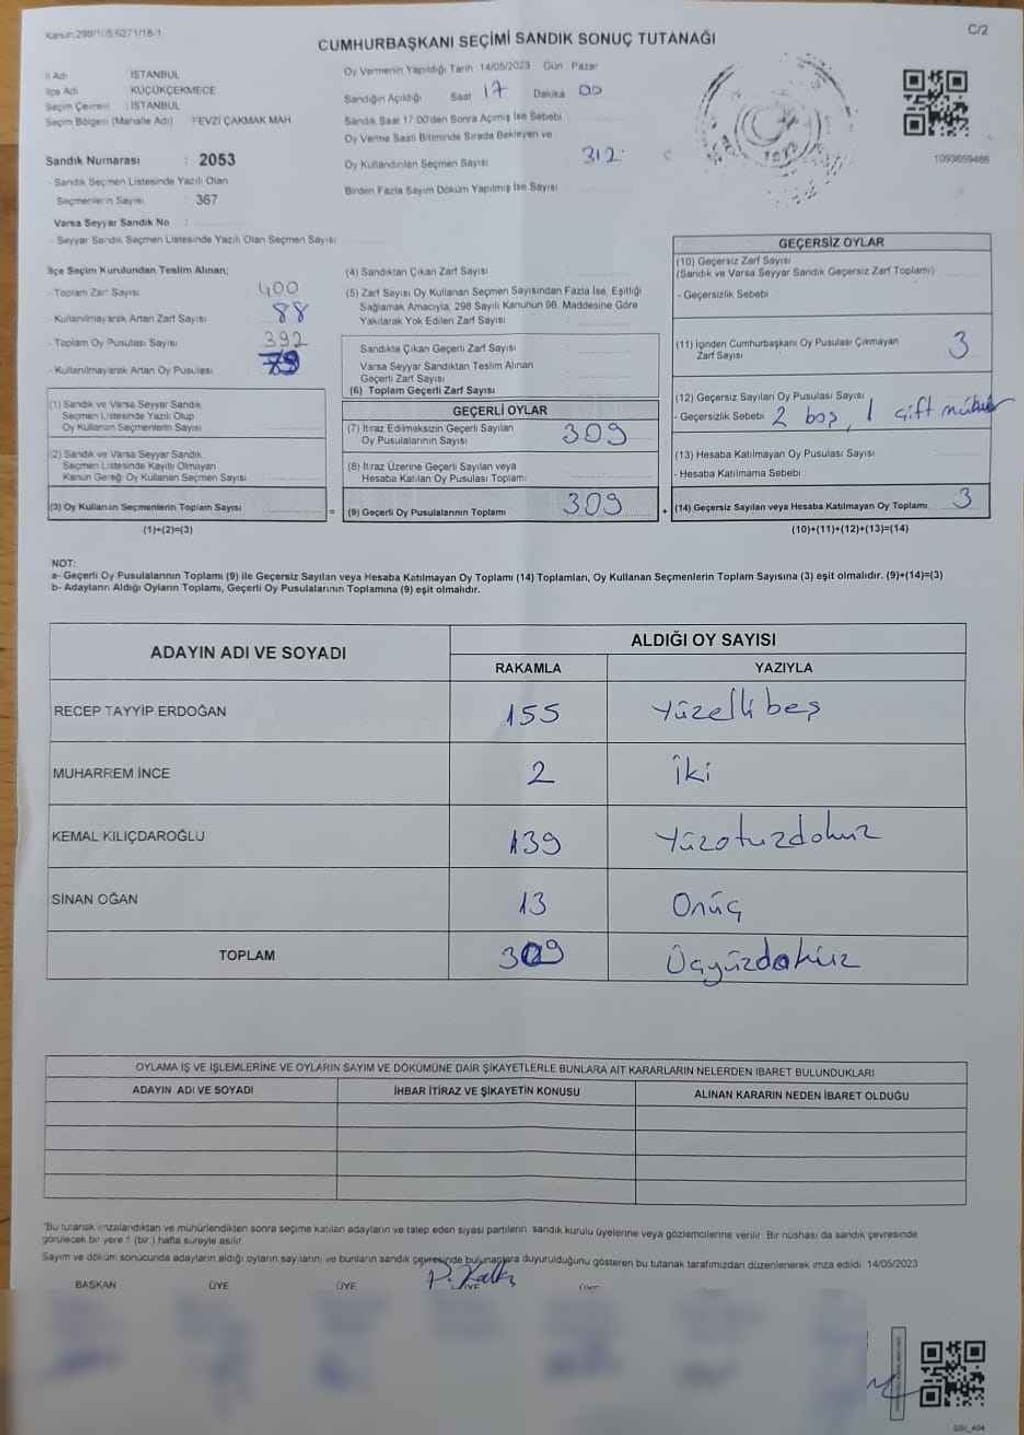 Kanun:298/105,6271/18-1
C/2
CUMHURBAŞKANI SEÇİMİ SANDIK SONUÇ TUTANAĞI
İl Adı : İSTANBUL
İlçe Adı : KÜÇÜKÇEKMECE
Seçim Çevresi : İSTANBUL
Seçim Bölgesi (Mahalle Adı) : FEVZİ ÇAKMAK MAH.
Sandık Numarası : 2053
- Sandık Seçmen Listesinde Yazılı Olan
Seçmenlerin Sayısı 367
Varsa Seyyar Sandık No :
- Seyyar Sandık Seçmen Listesinde Yazılı Olan Seçmen Sayısı
Oy Vermenin Yapıldığı Tarih 14/05/2023 Gün : Pazar
Sandığın Açıldığı Saat 17 Dakika 00
Sandık Saat 17:00'den Sonra Açılmış İse Sebebi
Oy Verme Saati Bitiminde Sırada Bekleyen ve
Oy Kullandırılan Seçmen Sayısı 312
Birden Fazla Sayım Döküm Yapılmış İse Sayısı
1093659466
İlçe Seçim Kurulundan Teslim Alınan;
- Toplam Zarf Sayısı 400
- Kullanılmayarak Artan Zarf Sayısı 88
- Toplam Oy Pusulası Sayısı 392
- Kullanılmayarak Artan Oy Pusulası
(1) Sandık ve Varsa Seyyar Sandık
Seçmen Listesinde Yazılı Olup
Oy Kullanan Seçmenlerin Sayısı
(2) Sandık ve Varsa Seyyar Sandık
Seçmen Listesinde Kayıtlı Olmayan
Kanun Gereği Oy Kullanan Seçmen Sayısı
(3) Oy Kullanan Seçmenlerin Toplam Sayısı
(1)+(2)=(3)
=
(4) Sandıktan Çıkan Zarf Sayısı
(5) Zarf Sayısı Oy Kullanan Seçmen Sayısından Fazla İse, Eşitliği
Sağlamak Amacıyla, 298 Sayılı Kanunun 98. Maddesine Göre
Yakılarak Yok Edilen Zarf Sayısı
Sandıkta Çıkan Geçerli Zarf Sayısı
Varsa Seyyar Sandıktan Teslim Alınan
Geçerli Zarf Sayısı
(6) Toplam Geçerli Zarf Sayısı
GEÇERLİ OYLAR
(7) İtiraz Edilmeksizin Geçerli Sayılan
Oy Pusulalarının Sayısı 309
(8) İtiraz Üzerine Geçerli Sayılan veya
Hesaba Katılan Oy Pusulası Toplamı
(9) Geçerli Oy Pusulalarının Toplamı 309
+
GEÇERSİZ OYLAR
(10) Geçersiz Zarf Sayısı
(Sandık ve Varsa Seyyar Sandık Geçersiz Zarf Toplamı)
- Geçersizlik Sebebi
(11) İçinden Cumhurbaşkanı Oy Pusulası Çıkmayan
Zarf Sayısı 3
(12) Geçersiz Sayılan Oy Pusulası Sayısı
- Geçersizlik Sebebi 2 boş, 1 çift mühür
(13) Hesaba Katılmayan Oy Pusulası Sayısı
- Hesaba Katılmama Sebebi
(14) Geçersiz Sayılan veya Hesaba Katılmayan Oy Toplamı 3
(10)+(11)+(12)+(13)=(14)
NOT:
a- Geçerli Oy Pusulalarının Toplamı (9) ile Geçersiz Sayılan veya Hesaba Katılmayan Oy Toplamı (14) Toplamları, Oy Kullanan Seçmenlerin Toplam Sayısına (3) eşit olmalıdır. (9)+(14)=(3)
b- Adayların Aldığı Oyların Toplamı, Geçerli Oy Pusulalarının Toplamına (9) eşit olmalıdır.
ADAYIN ADI VE SOYADI
ALDIĞI OY SAYISI
RAKAMLA YAZIYLA
RECEP TAYYİP ERDOĞAN 155 Yüzellibeş
MUHARREM İNCE 2 iki
KEMAL KILIÇDAROĞLU 139 Yüzotuzdokuz
SİNAN OĞAN 13 Onüç
TOPLAM 309 Üçyüzdokuz
OYLAMA İŞ VE İŞLEMLERİNE VE OYLARIN SAYIM VE DÖKÜMÜNE DAİR ŞİKAYETLERLE BUNLARA AİT KARARLARIN NELERDEN İBARET BULUNDUKLARI
ADAYIN ADI VE SOYADI İHBAR İTİRAZ VE ŞİKAYETİN KONUSU ALINAN KARARIN NEDEN İBARET OLDUĞU
*Bu tutanak imzalandıktan ve mühürlendikten sonra seçime katılan adayların ve talep eden siyasi partilerin sandık kurulu üyelerine veya gözlemcilerine verilir. Bir nüshası da sandık çevresinde
görülecek bir yere 1 (bir) hafta süreyle asılır.
Sayım ve döküm sonucunda adayların aldığı oyların sayılarını ve bunların sandık çevresinde bulunanlara duyurulduğunu gösteren bu tutanak tarafımızdan düzenlenerek imza edildi. 14/05/2023
BAŞKAN ÜYE ÜYE ÜYE ÜYE